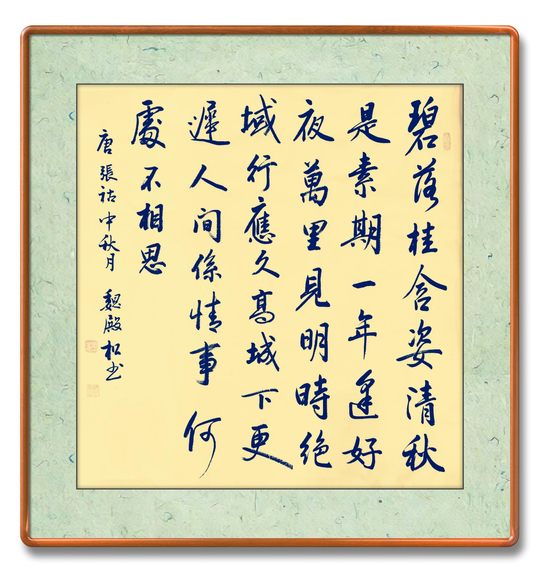 碧落桂含姿清秋
是素期一年逢好
夜萬里見明時絕
域行應久高城下更
遲人間係情事何
處不相思
唐張祜中秋月 魏殿松书